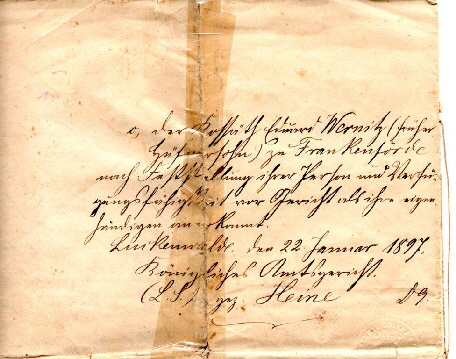 c, der Kossäth Eduard Wernitz (früher
Hüfnersohn) zu Frankenförde
nach Feststellung ihrer Person und Verfü-
gungsfähigkeit vor Gericht als ihre eigen-
händigen anerkannt.
Luckenwalde, den 22. Januar 1897.
Königliches Amtsgericht.
(L. S.) gez. Heine